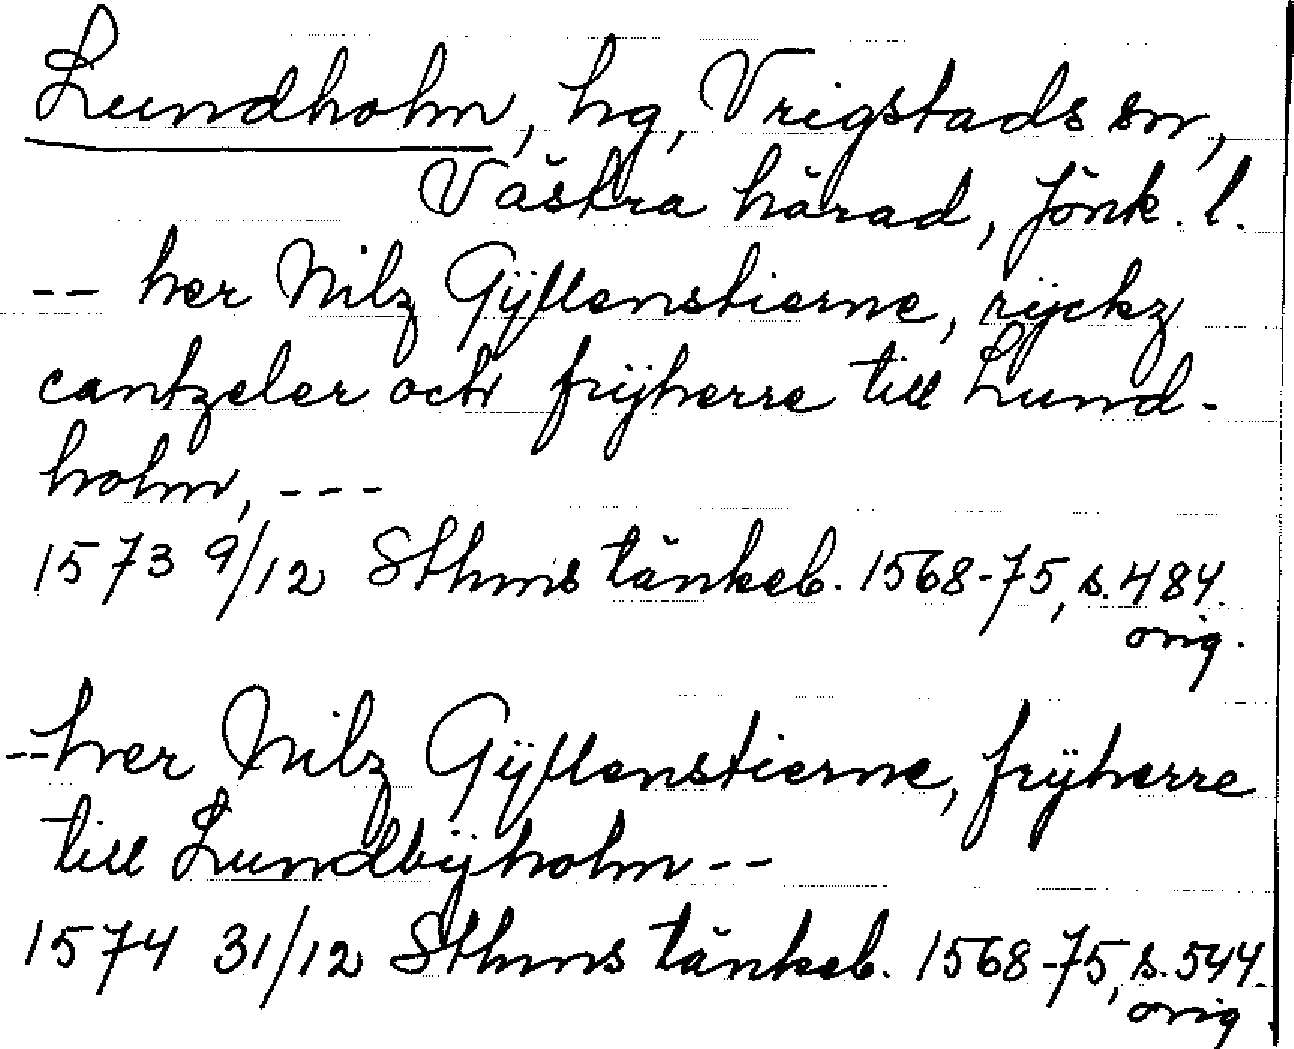 Lundholm, hg, Vrigstads sn,
Västra härad, Jönk. l.
-- her Nilz Gÿllenstierne, rÿckz
cantzeler och frÿherre till Lund-
holm, ---
1573 9/12 Sthms tänkeb. 1568-75, s. 484.
orig.
-- her Nilz Gÿllenstierne, frÿherre
till Lundbÿholm --
1574 31/12 Sthms tänkeb. 1568-75, s. 544.
orig.